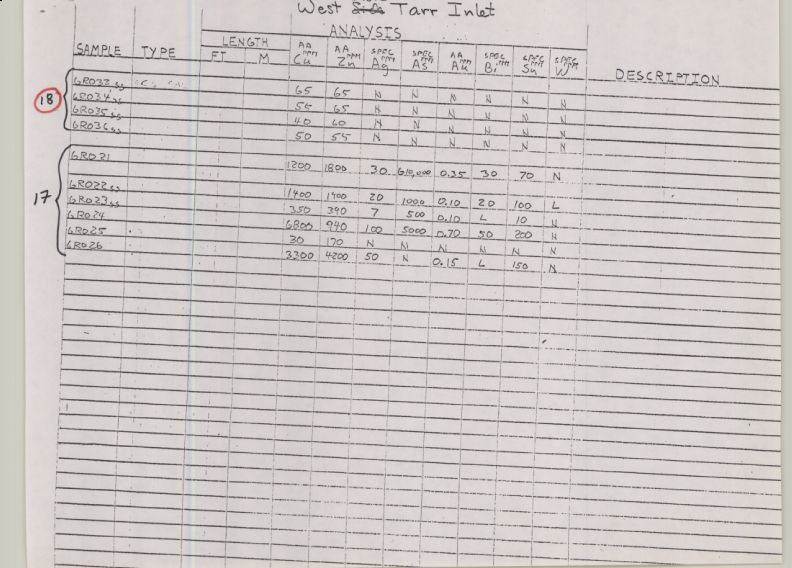 West Tarr Inlet
ANALYSIS
LENGTH
SAMPLE TYPE FT M AA ppm Cu AA ppm Zn SPEC ppm Ag SPEC ppm As AA ppm Au SPEC ppm Bi SPEC ppm Sn SPEC ppm W DESCRIPTION
18
6R033ss 65 65 N N N N N N
6R034ss 55 65 N N N N N N
6R035ss 40 60 N N N N N N
6R036ss 50 55 N N N N N N
17
6R021 1200 1800 30 G10,000 0.35 30 70 N
6R022ss 1400 1400 20 1000 0.10 20 100 L
6R023ss 350 390 7 500 0.10 L 10 N
6R024 6800 940 100 5000 0.70 50 200 N
6R025 30 170 N N N N N N
6R026 3300 4200 50 N 0.15 L 150 N